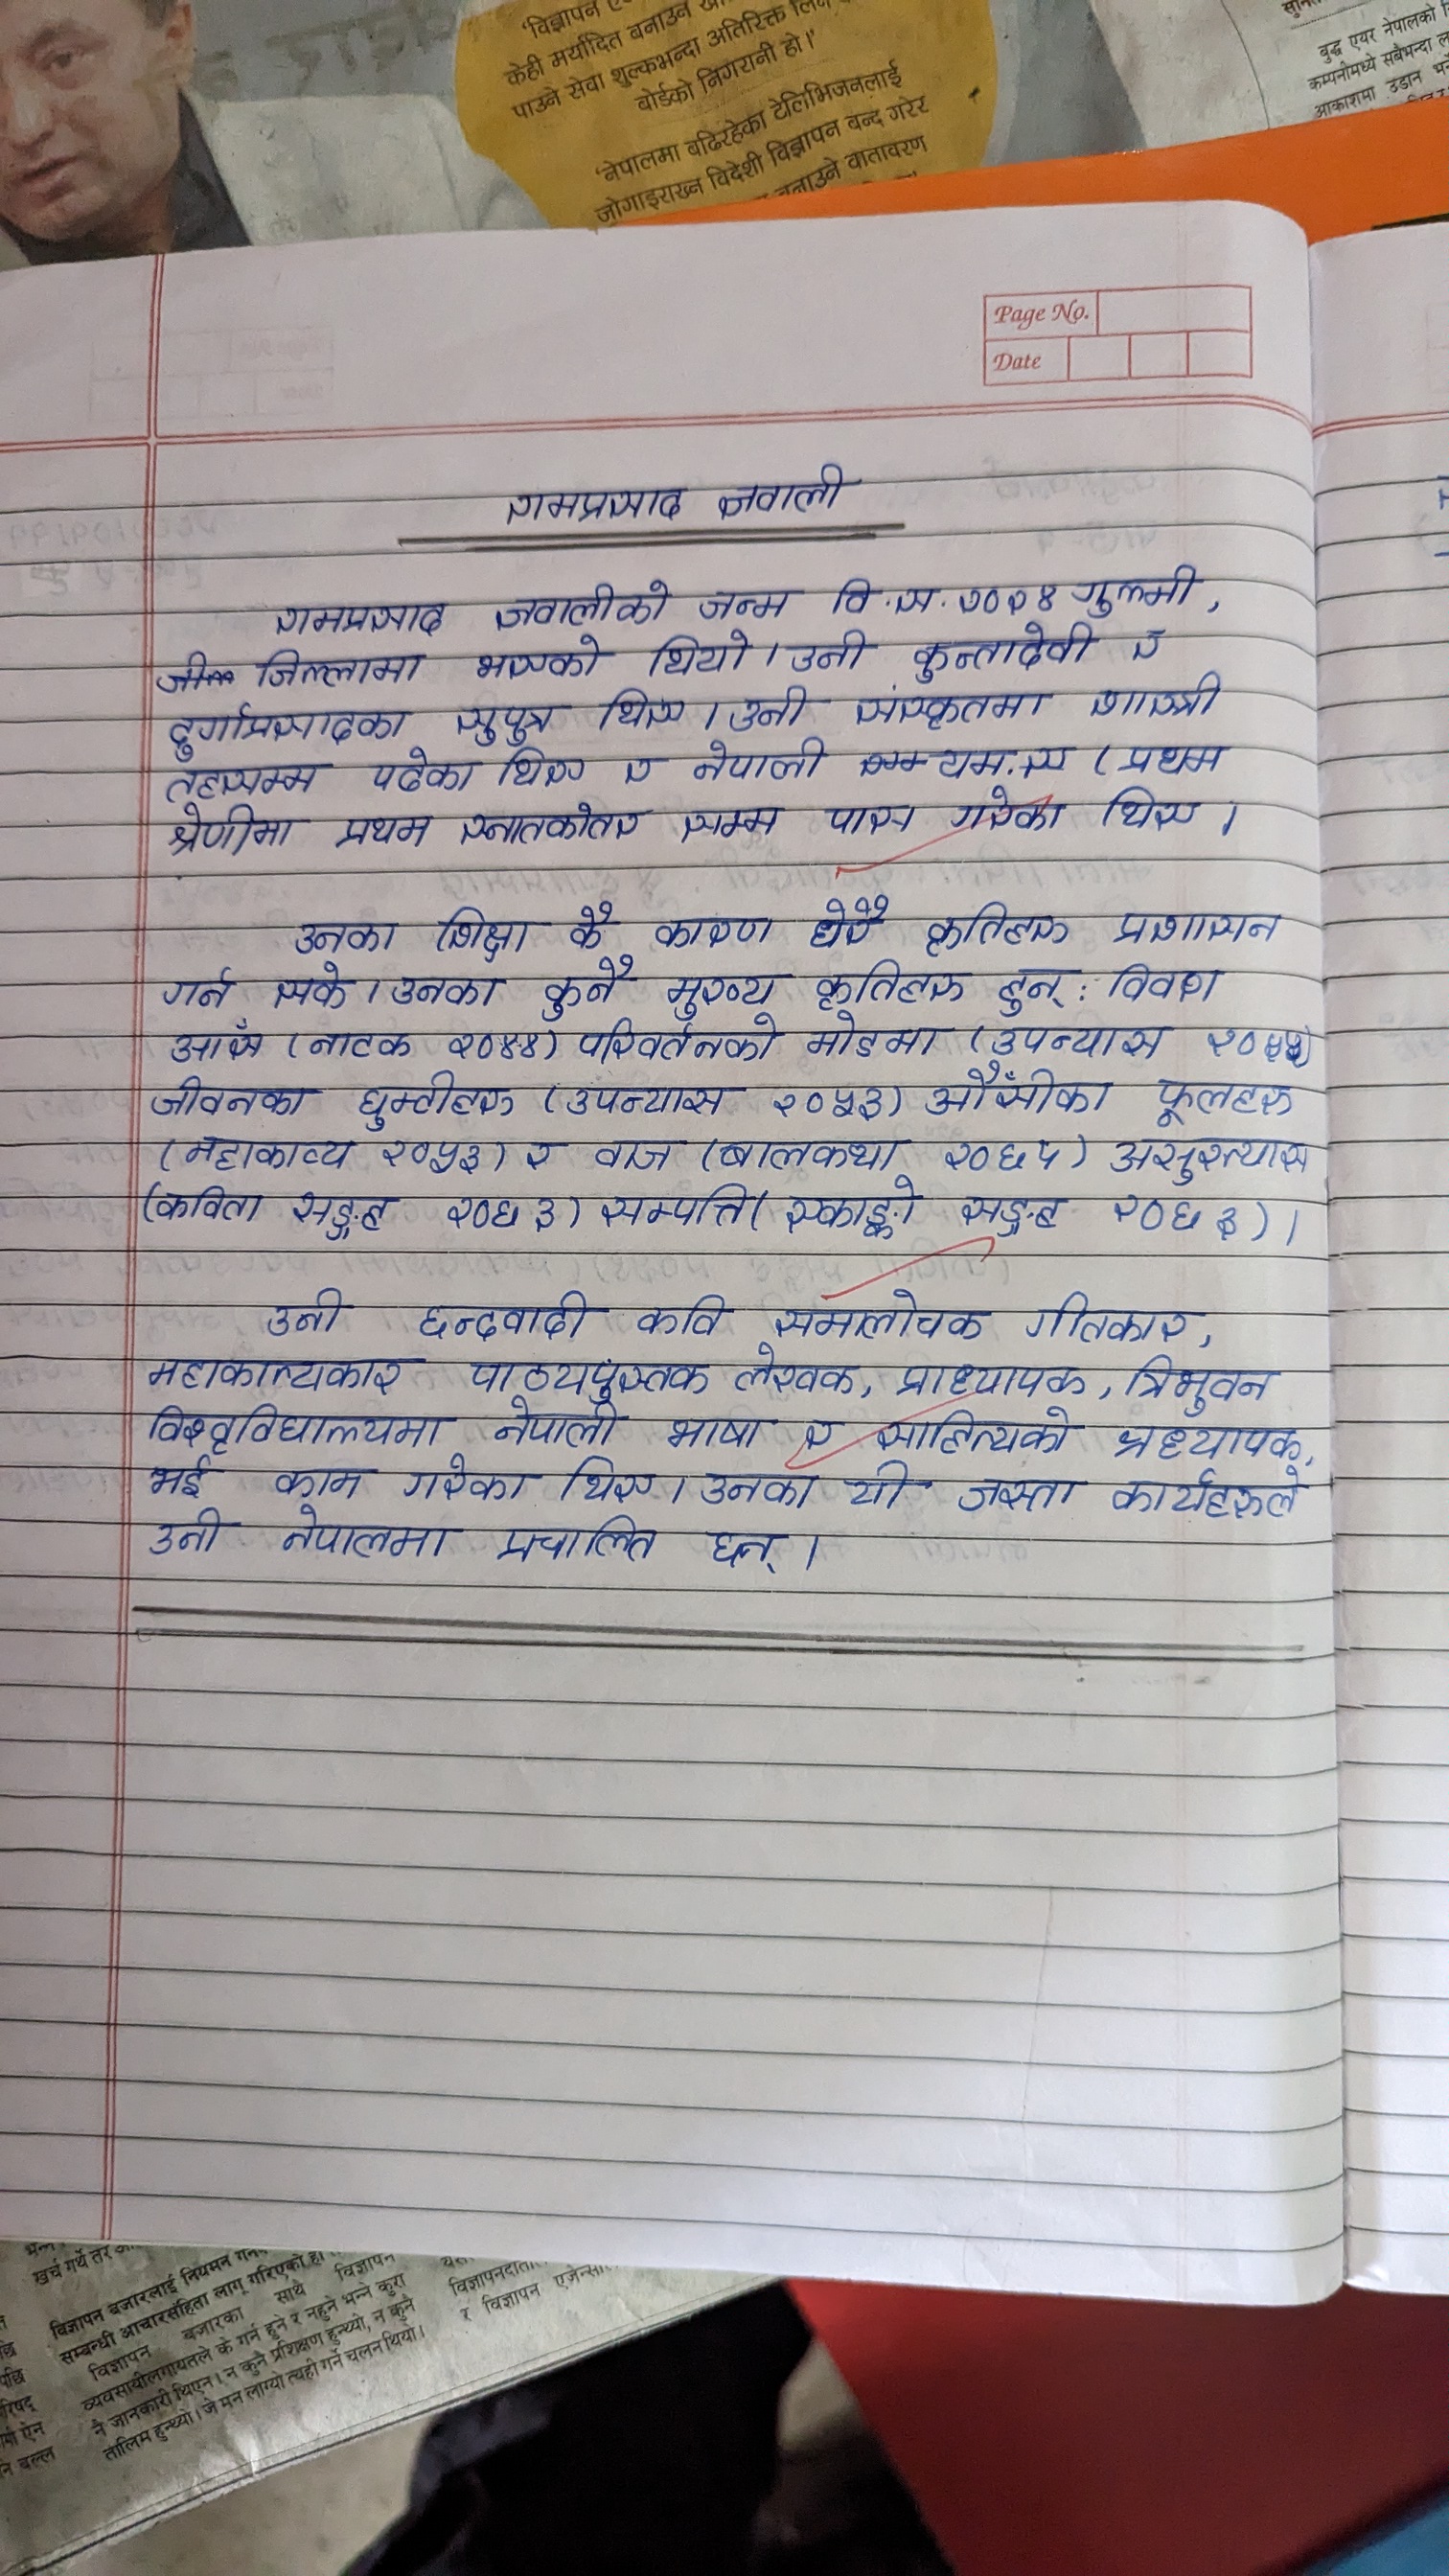 'विज्ञापन
केही मर्यादित बनाउन
पाउने सेवा शुल्कभन्दा अतिरिक्त
बोर्डको निगरानी हो।'
'नेपालमा बढिरहेका टेलिभिजनलाई
जोगाइराख्न विदेशी विज्ञापन बन्द गरेर
बनाउने वातावरण
बुद्ध एयर नेपालको
कम्पनीमध्ये सबैभन्दा
आकाशमा उडान
Page No.
Date
रामप्रसाद ज्ञवाली
रामप्रसाद ज्ञवालीको जन्म वि.स. २०२४ गुल्मी,
जिल्लामा भएको थियो। उनी कुन्तादेवी र
दुर्गाप्रसादका सुपुत्र थिए। उनी संस्कृतमा शास्त्री
तहसम्म पढेका थिए र नेपाली यम.ए (प्रथम
श्रेणीमा प्रथम स्नातकोतर सम्म पास गरेका थिए।
उनका शिक्षा कै कारण धेरै कृतिहरू प्रशासन
गर्न सके। उनका कुनै मुख्य कृतिहरू हुन्: विवश
आँसु (नाटक २०४४) परिवर्तनको मोडमा (उपन्यास
जीवनका घुम्टीहरू (उपन्यास २०५३) औँसीका फूलहरू
(महाकाव्य २०५३) र वाज (बालकथा २०६५)
(कविता सङ्ग्रह २०६३) सम्पत्ति (एकाङ्की सङ्ग्रह २०६३)।
उनी छन्दवादी कवि समालोचक गीतकार,
महाकाव्यकार पाठ्यपुस्तक लेखक, प्राध्यापक, त्रिभुवन
विश्वविद्याल्यमा नेपाली भाषा र साहित्यको प्रध्यापक,
भई काम गरेका थिए। उनका यी जस्ता कार्यहरूले
उनी नेपालमा प्रचालित छन्।
खर्च गर्थे तर
विज्ञापन बजारलाई नियमन गर्न
सम्बन्धी आचारसंहिता लागू गरिएको हो।
विज्ञापन बजारका साथै विज्ञापन
व्यवसायीलगायतले के गर्न हुने र नहुने भन्ने कुरा
नै जानकारी थिएन। न कुनै प्रशिक्षण हुन्थ्यो, न कुनै
तालिम हुन्थ्यो। जे मन लाग्यो त्यही गर्ने चलन थियो।
विज्ञापनदाता
र विज्ञापन एजेन्सी